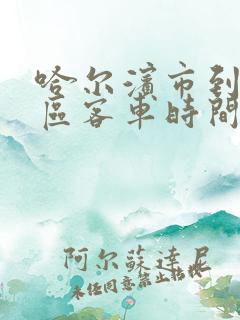 哈尔濱市到
區客車時間
阿尔蘇達尼
未经同意禁止转载